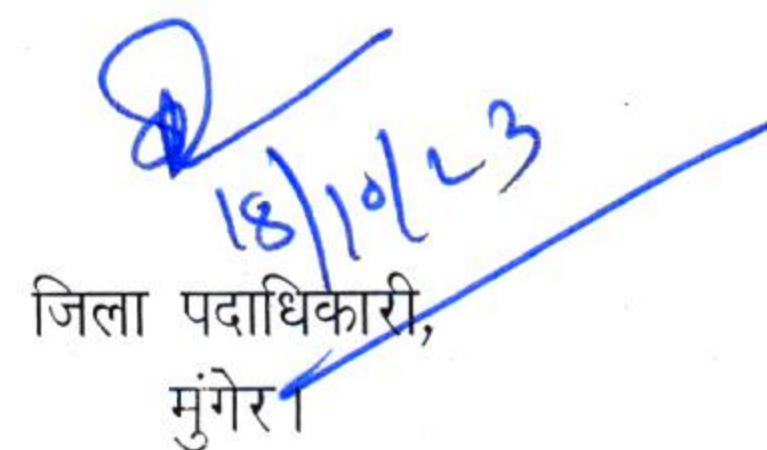 18/10/23
जिला पदाधिकारी,
मुंगेर।